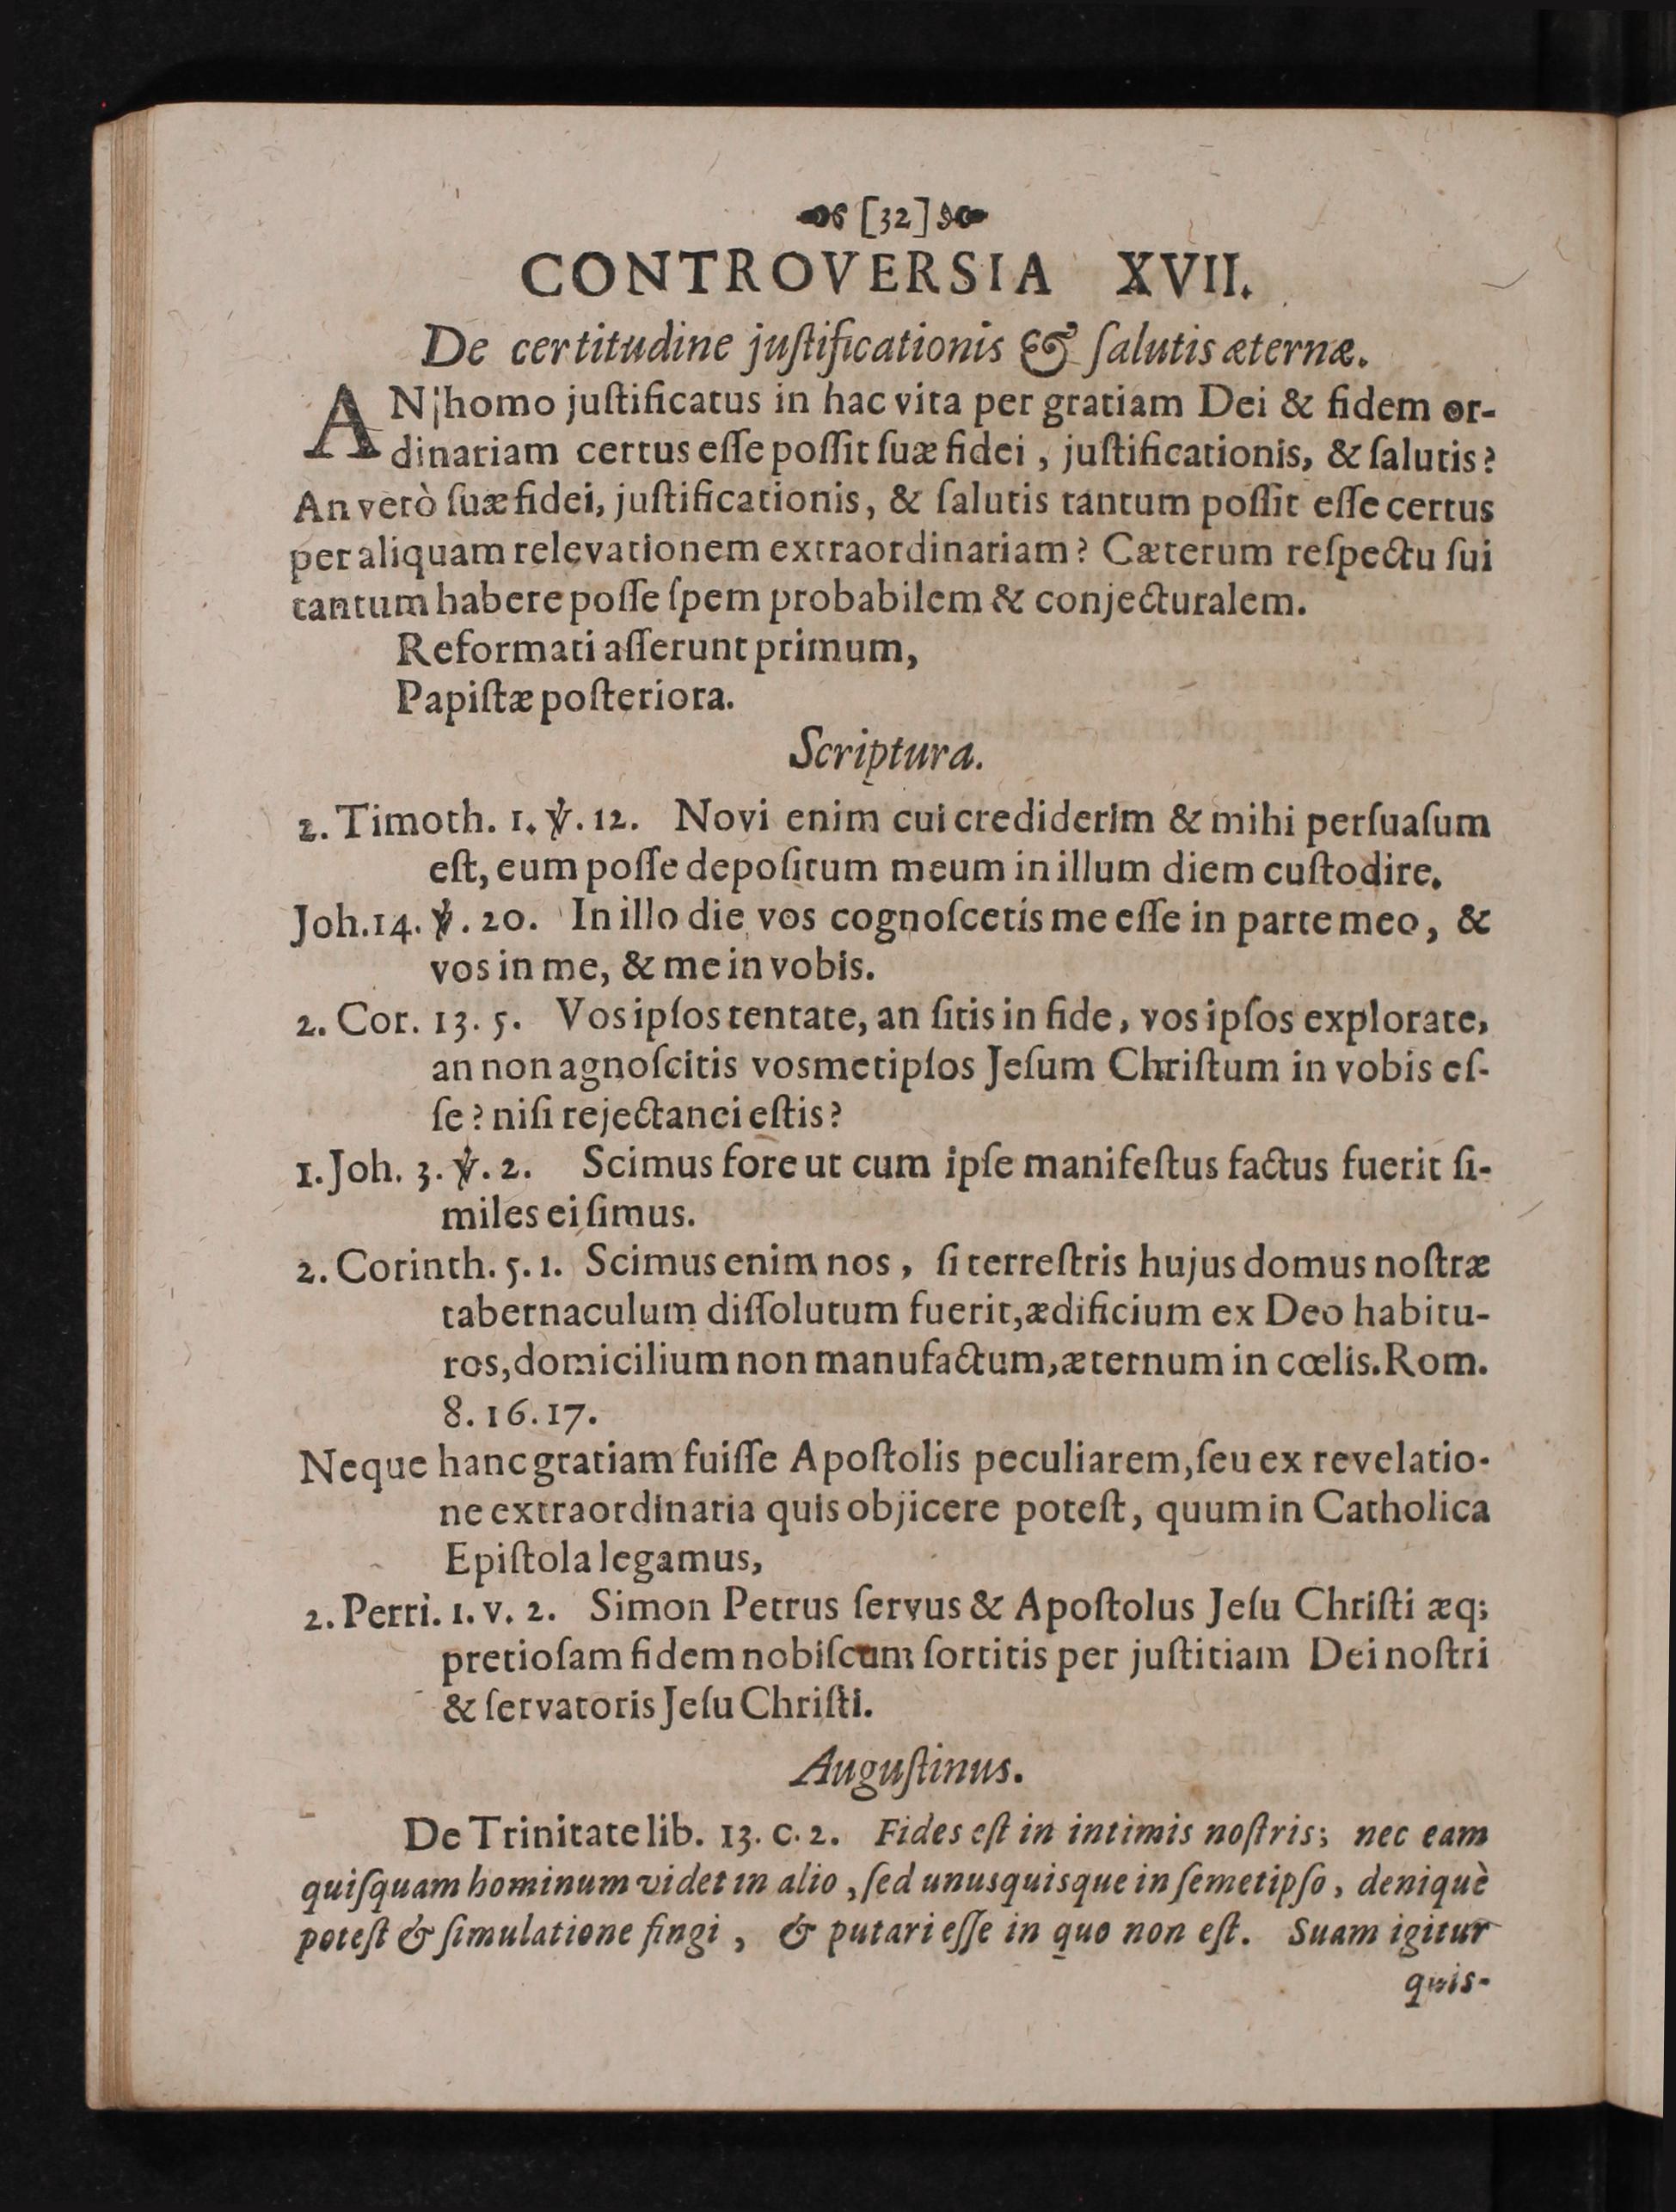 [32]
CONTROVERSIA XVII.
De certitudine juſtificationis & ſalutis æternæ.
AN homo juſtificatus in hac vita per gratiam Dei & fidem or-
dinariam certus eſſe poſſit ſuæ fidei, juſtificationis, & ſalutis?
An verò ſuæ fidei, juſtificationis, & ſalutis tantum poſſit eſſe certus
per aliquam relevationem extraordinariam? Cæterum reſpectu ſui
tantum habere poſſe ſpem probabilem & conjecturalem.
Reformati aſſerunt primum,
Papiſtæ poſteriora.
Scriptura.
2. Timoth. 1. ℣. 12. Novi enim cui crediderim & mihi perſuaſum
eſt, eum poſſe depoſitum meum in illum diem cuſtodire.
Joh. 14. ℣. 20. In illo die vos cognoſcetis me eſſe in parte meo, &
vos in me, & me in vobis.
2. Cor. 13. 5. Vos ipſos tentate, an ſitis in fide, vos ipſos explorate,
an non agnoſcitis vosmetipſos Jeſum Chriſtum in vobis eſ-
ſe? niſi rejectanei eſtis?
1. Joh. 3. ℣. 2. Scimus fore ut cum ipſe manifeſtus factus fuerit ſi-
miles ei ſimus.
2. Corinth. 5. 1. Scimus enim nos, ſi terreſtris hujus domus noſtræ
tabernaculum diſſolutum fuerit, ædificium ex Deo habitu-
ros, domicilium non manufactum, æternum in cœlis. Rom.
8. 16. 17.
Neque hanc gratiam fuiſſe Apoſtolis peculiarem, ſeu ex revelatio-
ne extraordinaria quis objicere poteſt, quum in Catholica
Epiſtola legamus,
2. Perri. 1. v. 2. Simon Petrus ſervus & Apoſtolus Jeſu Chriſti æq;
pretioſam fidem nobiſcum ſortitis per juſtitiam Dei noſtri
& ſervatoris Jeſu Chriſti.
Auguſtinus.
De Trinitate lib. 13. c. 2. Fides eſt in intimis noſtris; nec eam
quiſquam hominum videt in alio, ſed unusquisque in ſemetipſo, deniquè
poteſt & ſimulatione fingi, & putari eſſe in quo non eſt. Suam igitur
quis-